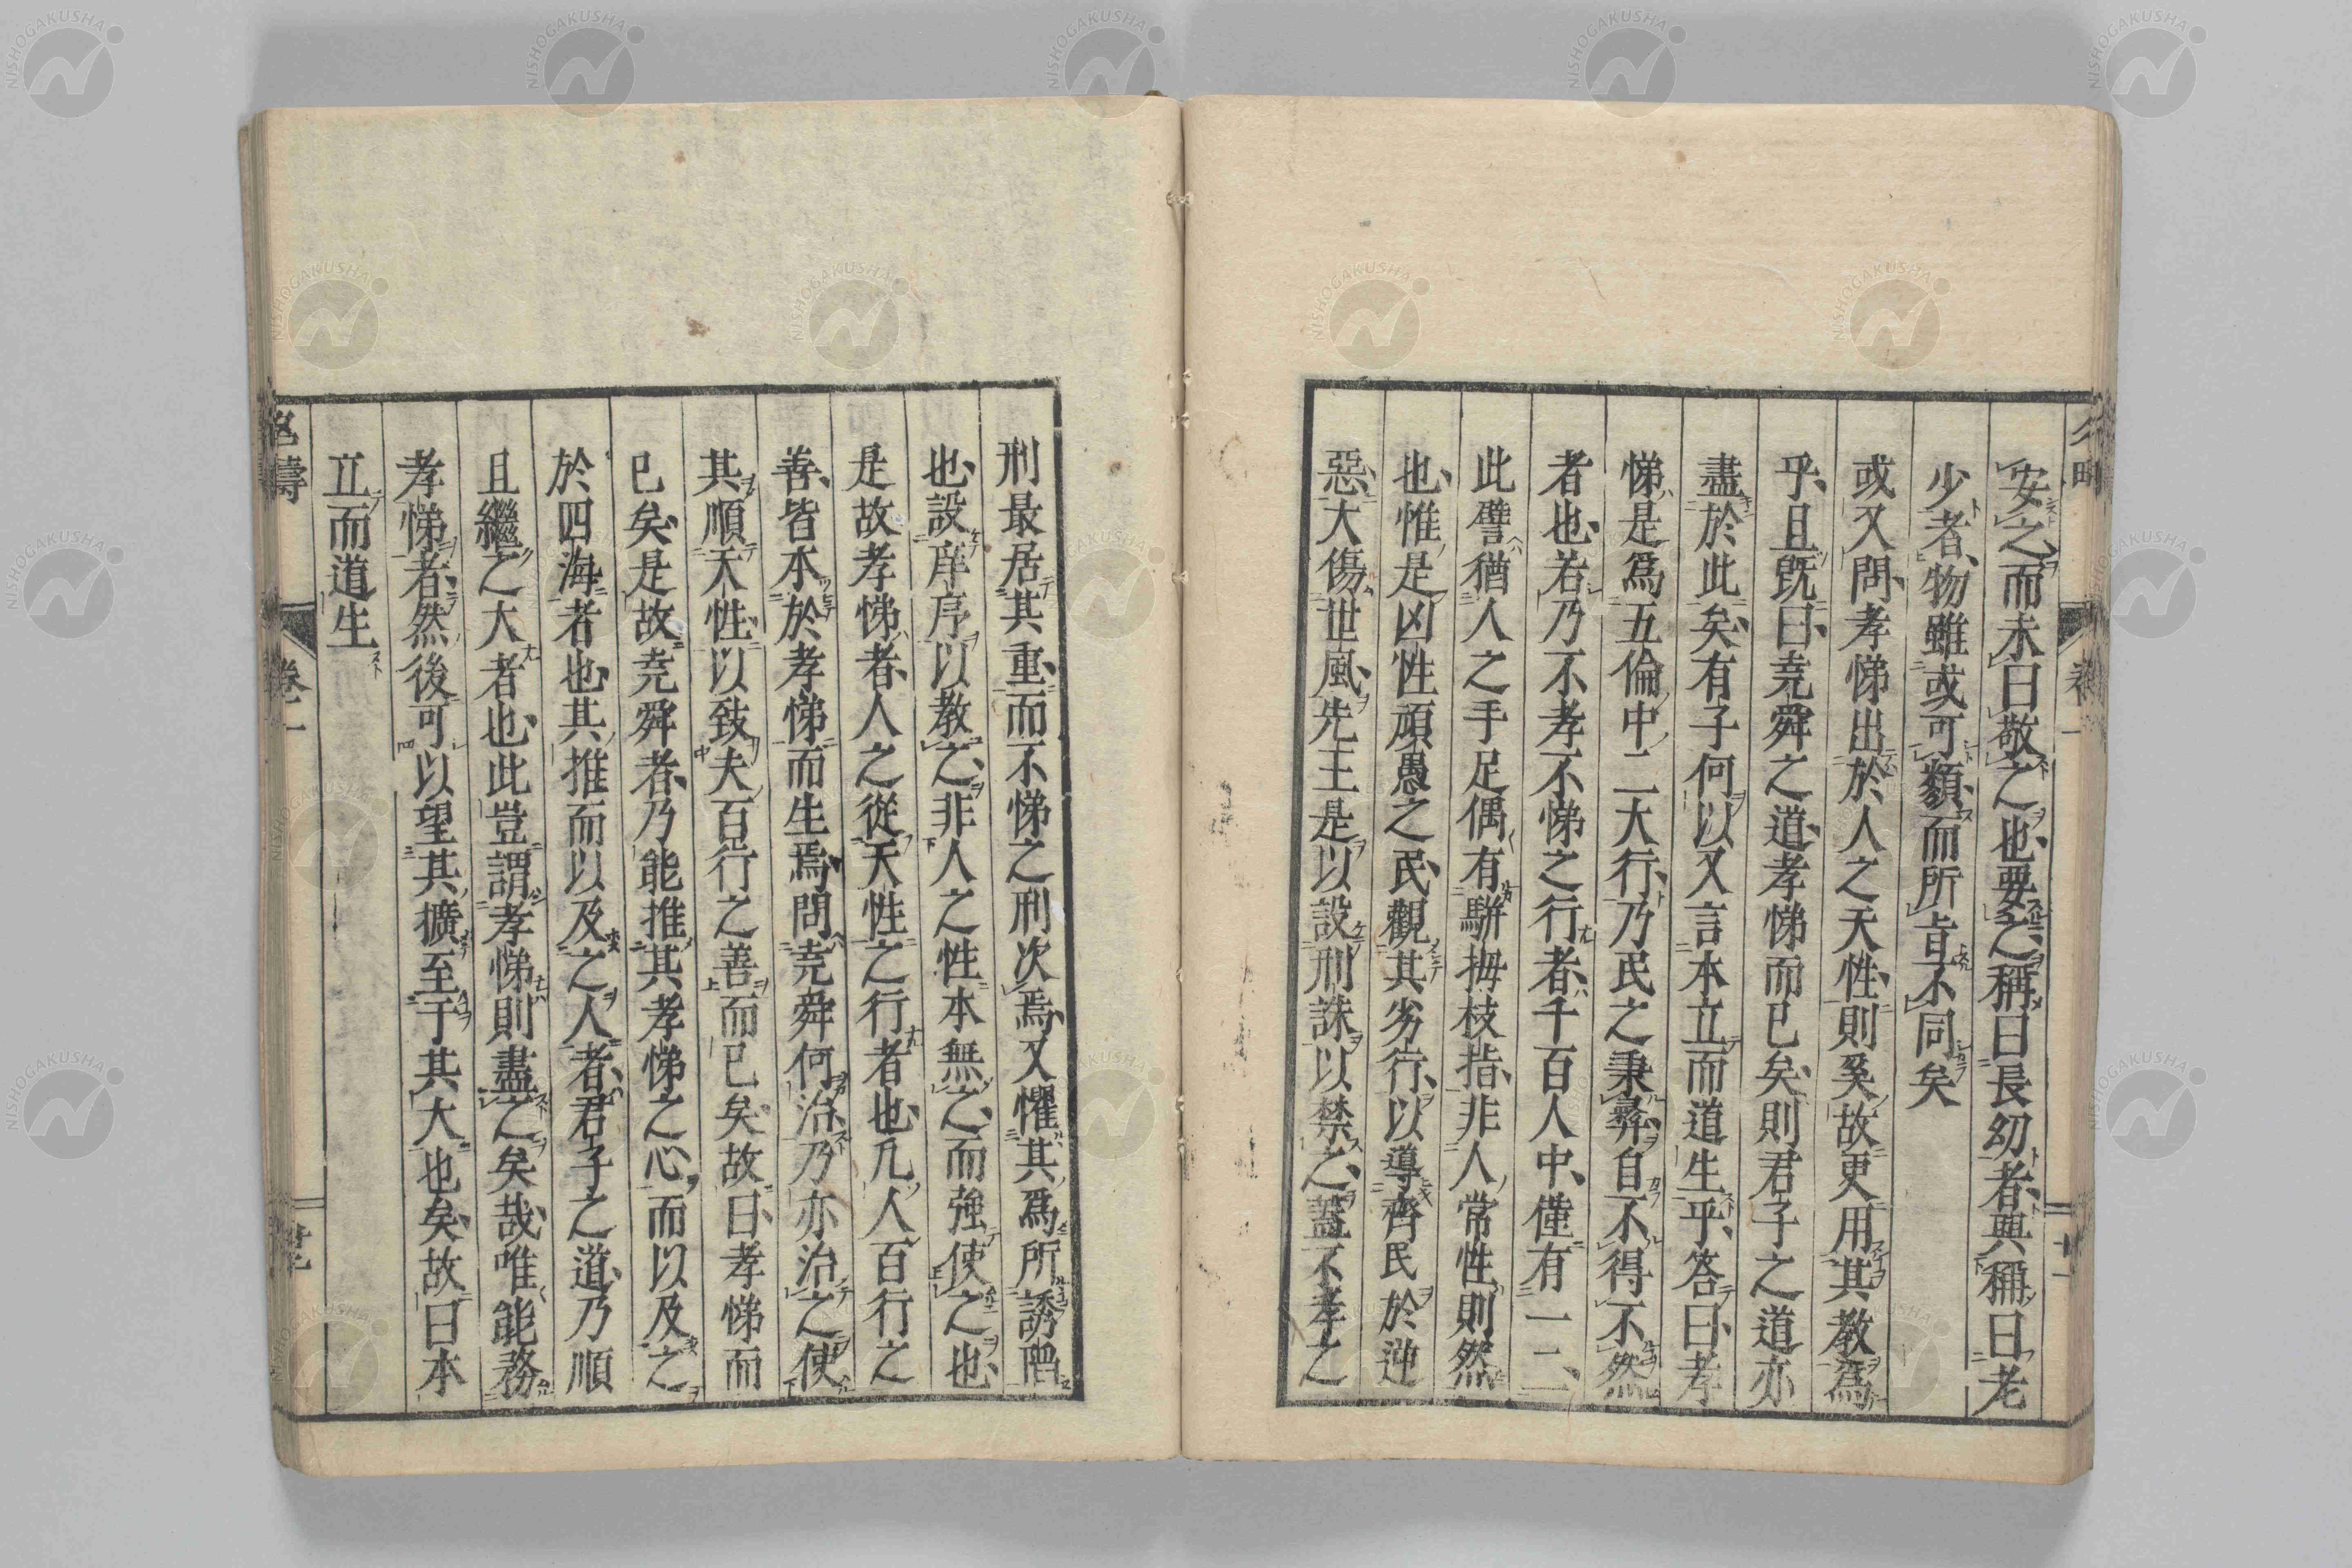 安之而未曰敬之也要之稱曰長幼者與稱曰老
少者物雖或可類而所旨不同矣
或又問孝悌出於人之天性則奚故更用其教爲
乎且既曰堯舜之道孝悌而已矣則君子之道亦
盡於此矣有子何以又言本立而道生乎答曰孝
悌是爲五倫中二大行乃民之秉彝自不得不然
者也若乃不孝不悌之行者千百人中僅有一二
此譬猶人之手足偶有駢拇枝指非人常性則然
也惟是凶性頑愚之民觀其劣行以導齊民於逆
惡大傷世風先王是以設刑誅以禁之蓋不孝之
刑最居其重而不悌之刑次焉又懼其爲所誘
也設庠序以教之非人之性本無之而強使之也
是故孝悌者人之從天性之行者也凡人百行之
善皆本於孝悌而生焉問堯舜何治乃亦治之使
其順天性以致夫百行之善而已矣故曰孝悌而
已矣是故堯舜者乃能推其孝悌之心而以及之
於四海者也其推而以及之人者君子之道乃順
且繼之大者也此豈謂孝悌則盡之矣哉唯能務
孝悌者然後可以望其擴至于其大也矣故曰本
立而道生
名疇
卷一